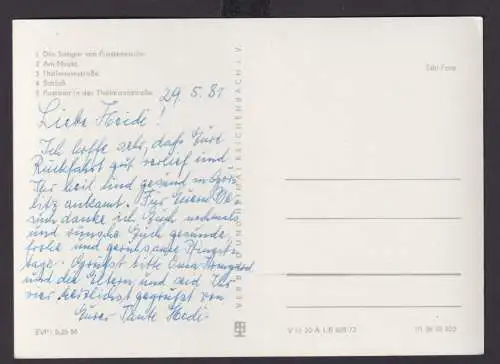 1 Das Sanger von Finsterwalde
2 Am Markt
3 Thälmannstraße
4 Schloß
5 Postamt in der Thälmannstraße
Echt Foto
29. 5. 81
Liebe Heidi!
Ich hoffe sehr, daß Eure
Rückfahrt gut verlief und
Ihr heil und gesund in Gör-
litz ankamt. Für Euern Be-
such danke ich Euch nochmals
und wünsche Euch gesunde,
frohe und geruhsame Pfingst-
tage. Grüßt bitte Oma
und die Eltern und seid Ihr
vier herzlichst gegrüßt von
Eurer Tante Hedi
VERLAG BILD UND HEIMAT REICHENBACH I. V.
EVP:
V 11 20 A 1/B